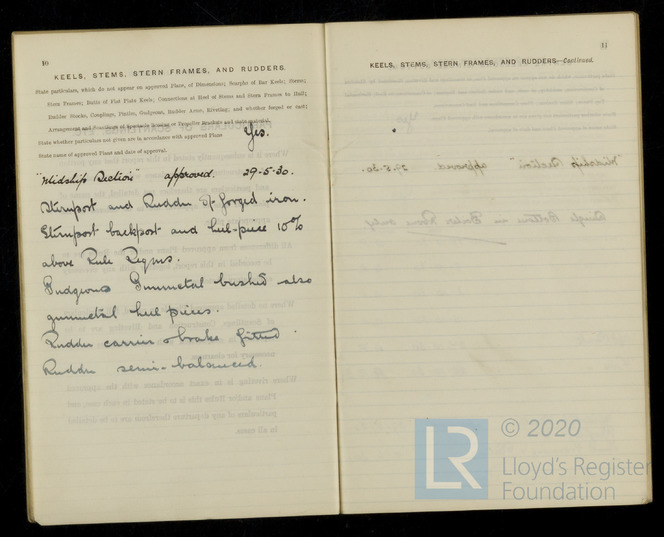 10
KEELS, STEMS, STERN FRAMES, AND RUDDERS.
State particulars, which do not appear on approved Plans, of Dimensions; Scarphs of Bar Keels; Stems;
Stern Frames; Butts of Flat Plate Keels; Connections at Heel of Stems and Stern Frames to Hull;
Rudder Stocks, Couplings, Pintles, Gudgeons, Rudder Arms, Riveting; and whether forged or cast;
Arrangement and Scantlings of Propeller Brackets and state material.
State whether particulars not given are in accordance with approved Plans Yes.
State name of approved Plans and date of approval.
"Midship Section" approved. 29-5-30.
Sternpost and Rudder of forged iron.
Sternpost backpost and heel-piece 10%
above Rule Reqms.
Gunmetal bushed also
gunmetal heel pieces.
Rudder carrier & brake fitted.
Rudder semi-balanced.
11
KEELS, STEMS, STERN FRAMES, AND RUDDERS—Continued.
LR
© 2020
Lloyd's Register
Foundation